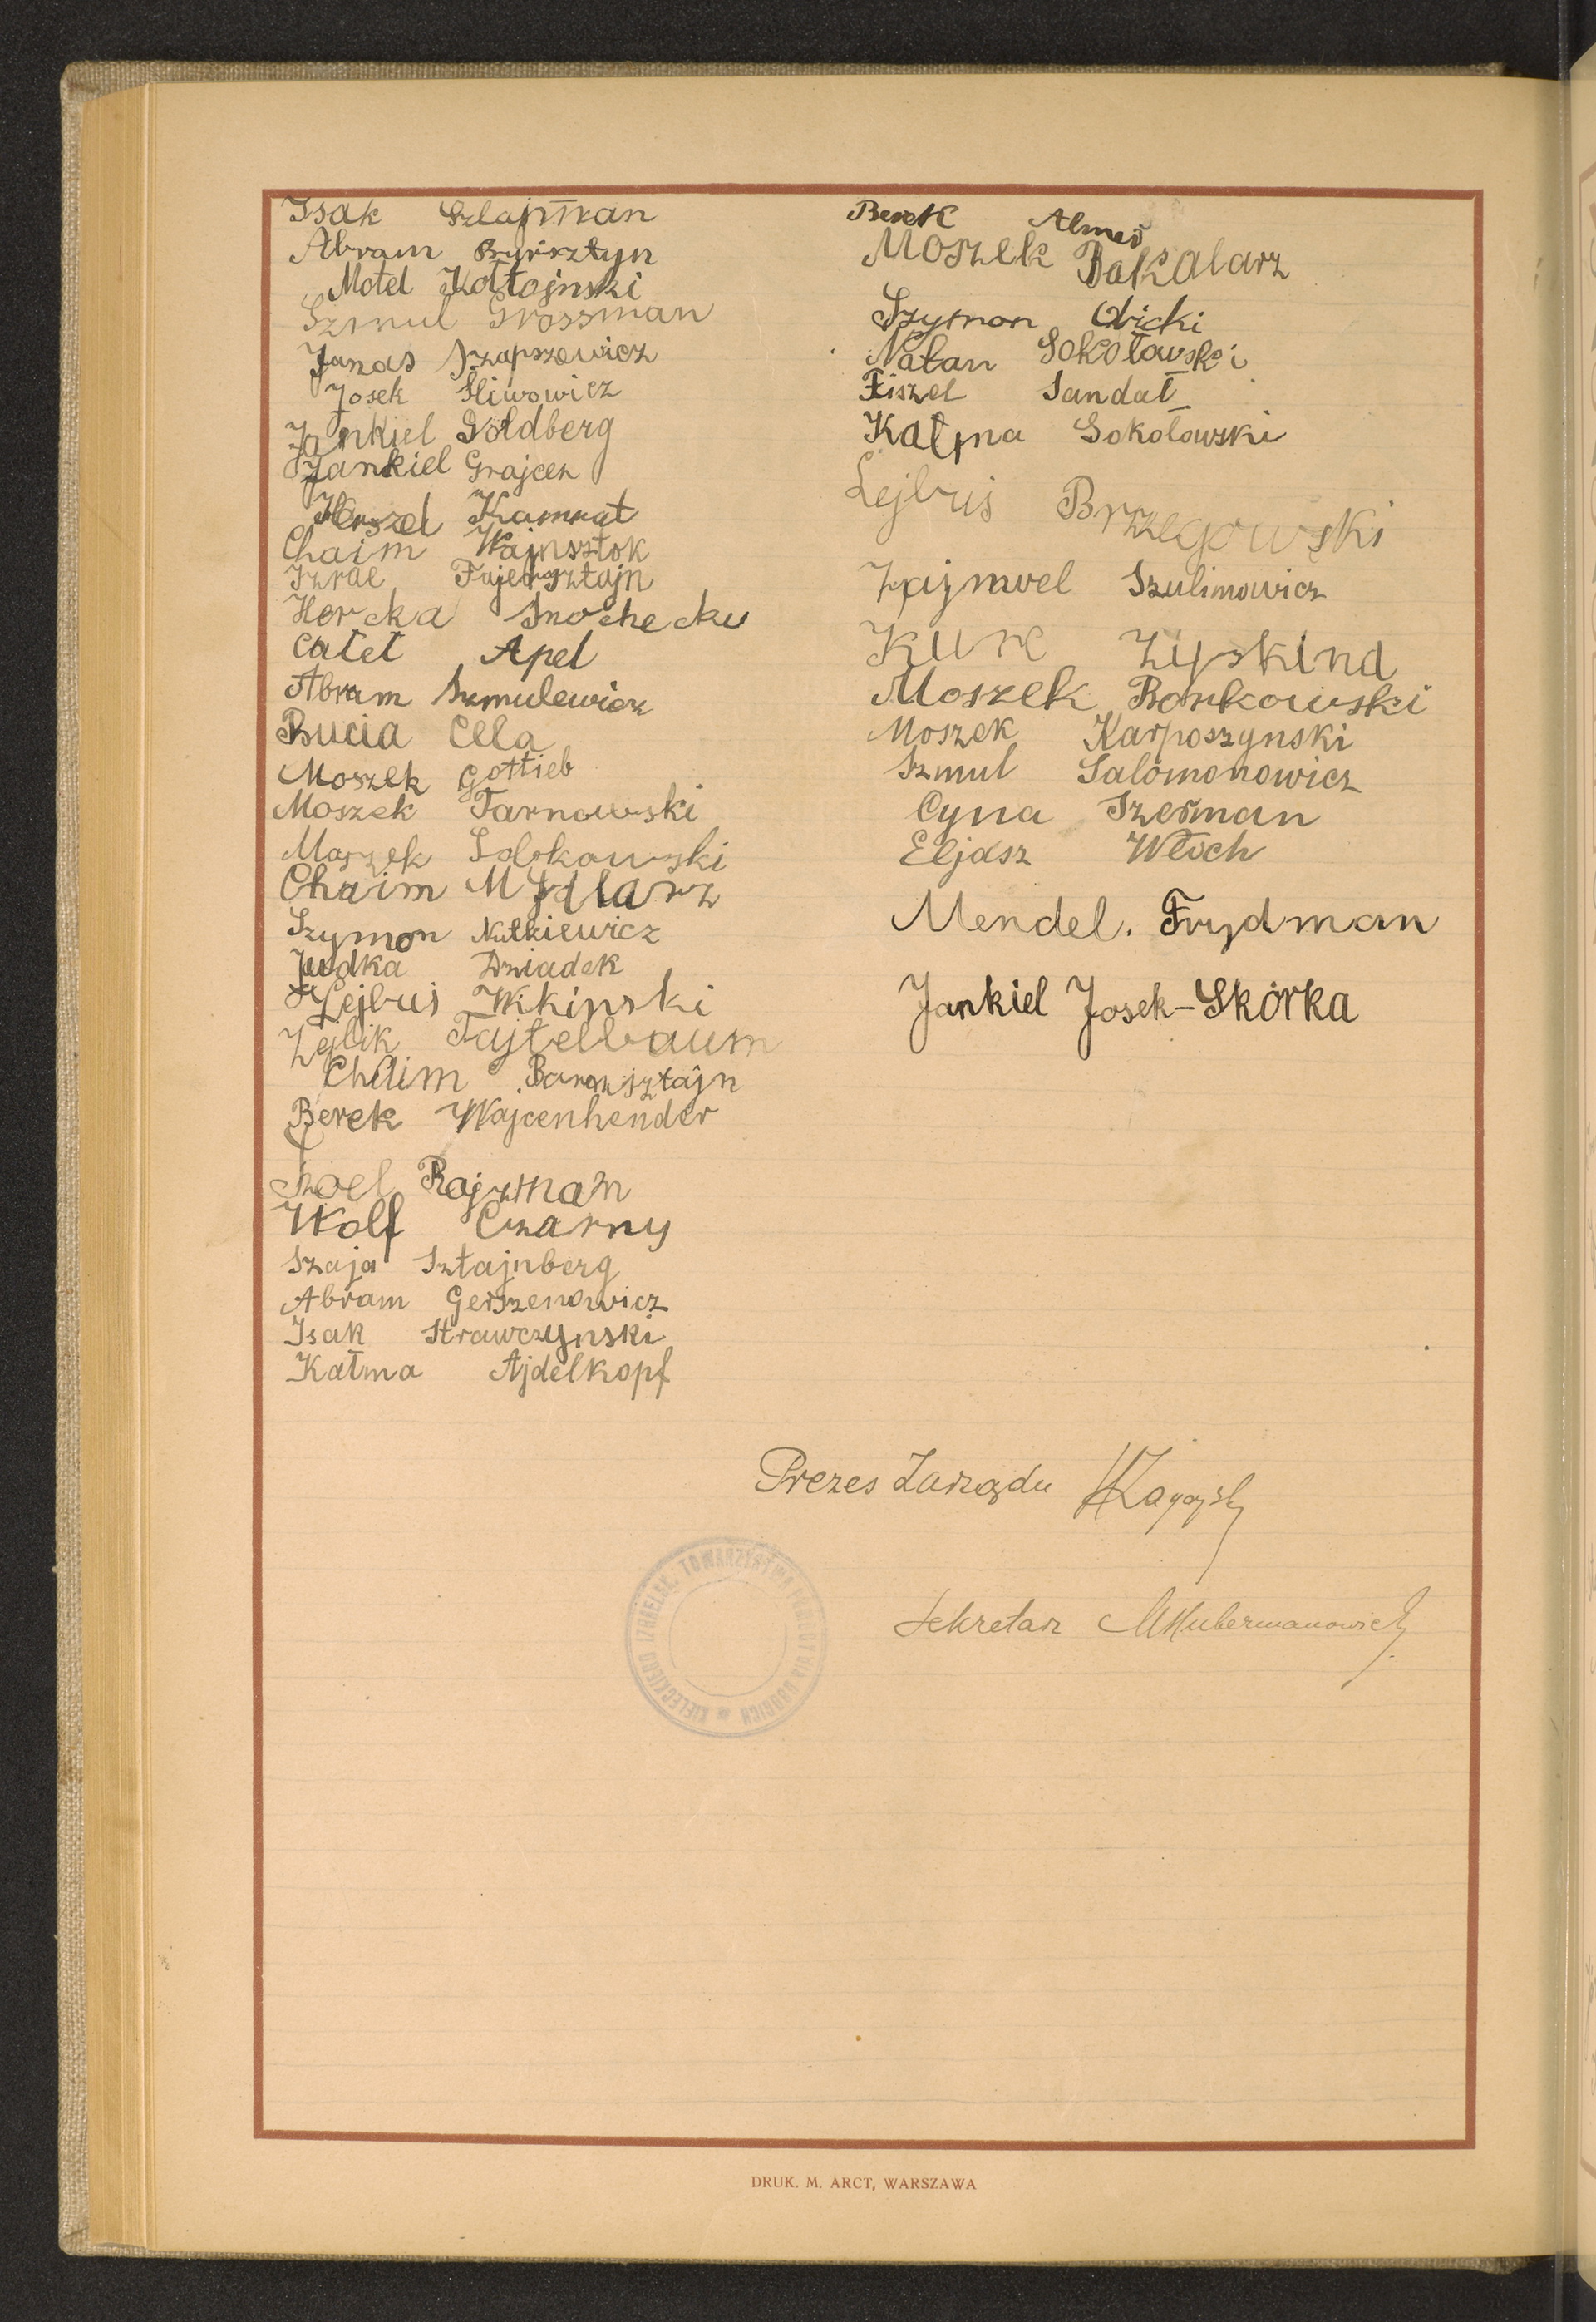 Isak Szlajman
Abram Bursztyn
Motel Kołtojnski
Szmul Grossman
Janas Szapszewicz
Josek Śliwowicz
Jankiel Goldberg
Jankiel Grajcer
Herszel Kamrat
Chaim Wajnsztok
Izrae Fajersztajn
Hercka
Całeł Apel
Abram Szmulewicz
Rucia Cela
Moszek Gottieb
Moszek Tarnowski
Moszek
Chaim Mydlarz
Szymon Nutkiewicz
Judka Dziadek
Lejbuś
Zejlik Tajtelbaum
Chaim
Berek Wajcenhender
Rajzman
Wolf Czarny
Szaja Sztajnberg
Abram Gerszenowicz
Isak Strawczynski
Kałma Ajdelkopf
Berek
Moszek Bakalarz
Szymon
Natan Sokołowski
Fiszel Sandał
Kałma Sokołowski
Lejbuś Brzegowski
Zajnwel Szulimowicz
Kurc Zyskind
Moszek Borkowski
Moszek Karposzynski
Szmul Salomonowicz
Cyna Szerman
Eljasz Włoch
Mendel. Frydman
Jankiel Josek-Skórka
Prezes Zarządu
Sekretarz MHubermanowicz
KIELECKIEGO IZRAELSK. TOWARZYSTWA POMOCY DLA UBOGICH
DRUK. M. ARCT, WARSZAWA